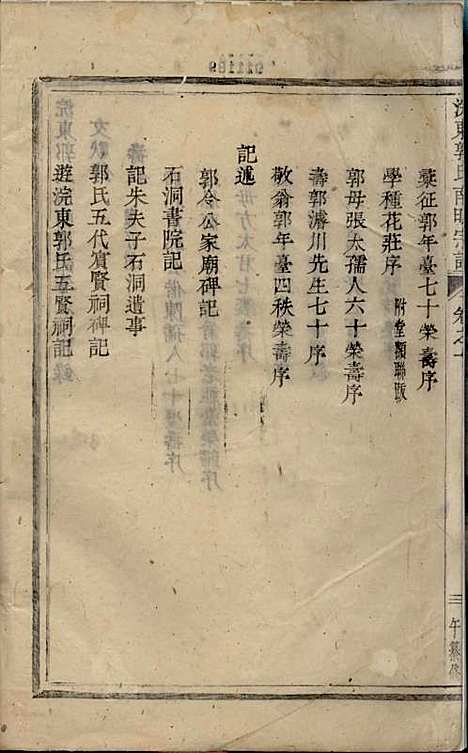 浣東郭氏南畈宗譜 卷之一
三 午纂修
黎征郭年臺七十榮壽序
學種花莊序 附堂額聯跋
郭母張太孺人六十榮壽序
壽郭濬川先生七十序
敬翁郭年臺四秩榮壽序
記述
郭令公家廟碑記
石洞書院記
記朱夫子石洞遺事
郭氏五代賓賢祠碑記
遊浣東郭氏五賢祠記